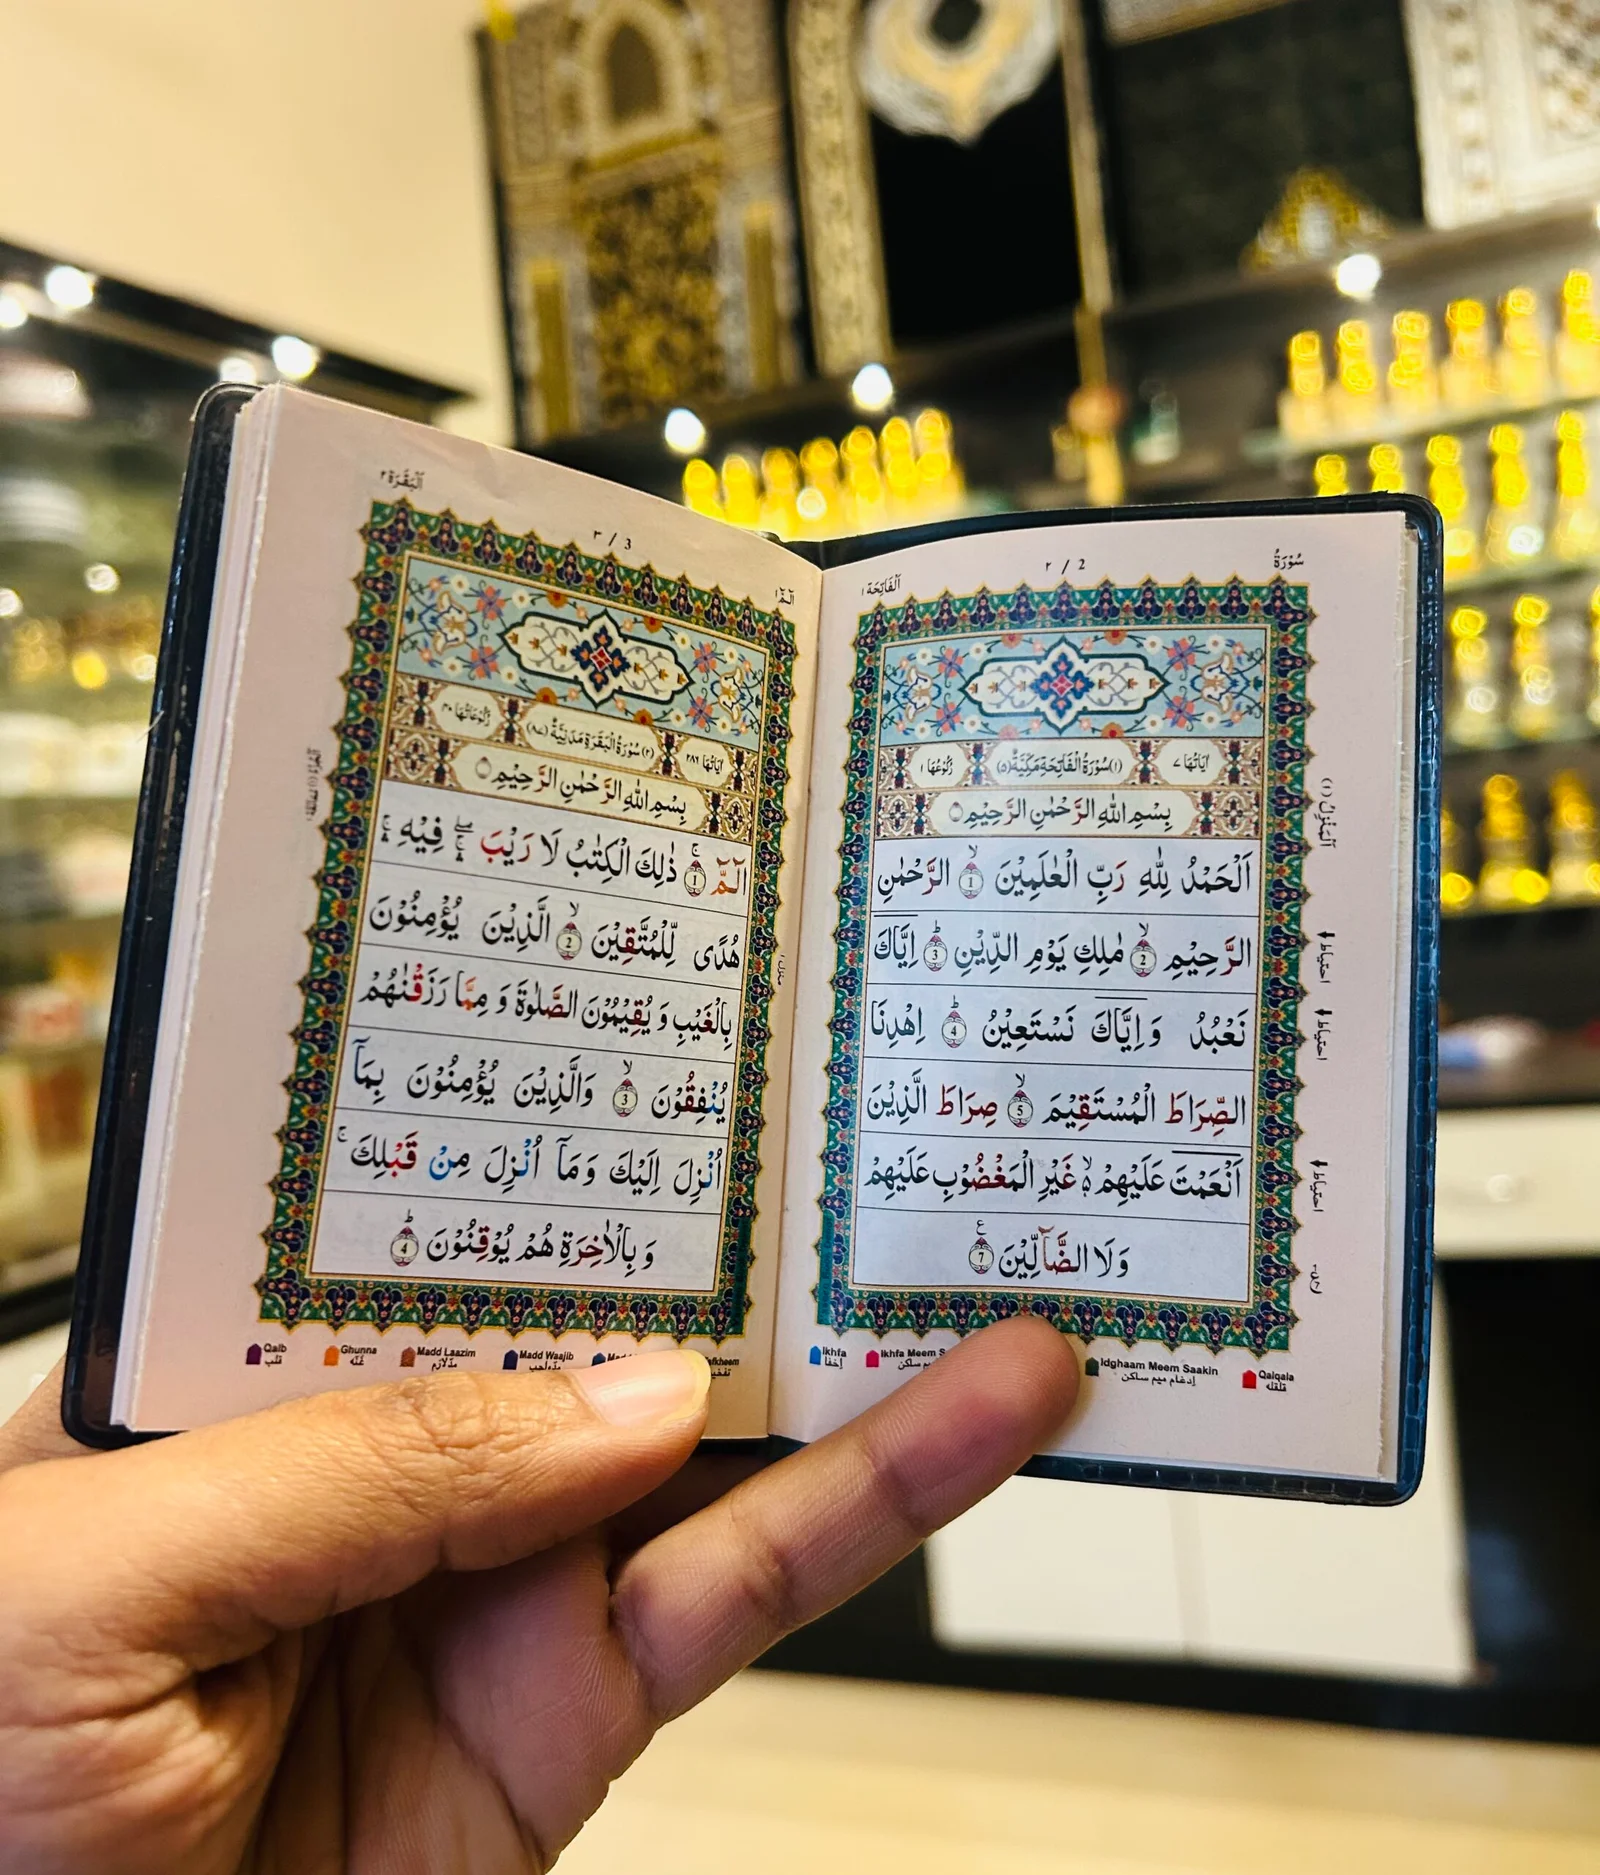 سُوْرَةُ
٢ / 2
اَلْفَاتِحَة ١
اٰیَاتُهَا ٧
(١) سُوْرَةُ الْفَاتِحَةِ مَكِّيَّةٌ (٥)
رُكُوْعُهَا ١
بِسْمِ اللّٰهِ الرَّحْمٰنِ الرَّحِيْمِ
اَلْحَمْدُ لِلّٰهِ رَبِّ الْعٰلَمِيْنَ ۙ 1 الرَّحْمٰنِ
الرَّحِيْمِ ۙ 2 مٰلِكِ يَوْمِ الدِّيْنِ ؕ 3 اِيَّاكَ
نَعْبُدُ وَ اِيَّاكَ نَسْتَعِيْنُ ؕ 4 اِهْدِنَا
الصِّرَاطَ الْمُسْتَقِيْمَ ۙ 5 صِرَاطَ الَّذِيْنَ
اَنْعَمْتَ عَلَيْهِمْ ۙ۬ غَيْرِ الْمَغْضُوْبِ عَلَيْهِمْ
وَلَا الضَّآلِّيْنَ 7 ع
اَلْمَنْزِلُ (١)
احتیاط
احتیاط
احتیاط
Ikhfa
إخفا
Ikhfa Meem
میم ساکن
Idghaam Meem Saakin
إدغام میم ساکن
Qalqala
قلقله
اَلْبَقَرَة ٢
٣ / 3
الٓمّٓ ١
اٰیَاتُهَا ٢٨٦
(٢) سُوْرَةُ الْبَقَرَةِ مَدَنِيَّةٌ (٨٧)
رُكُوْعَاتُهَا ٤٠
بِسْمِ اللّٰهِ الرَّحْمٰنِ الرَّحِيْمِ
الٓمّٓ ۚ 1 ذٰلِكَ الْكِتٰبُ لَا رَيْبَ ۛۖ فِيْهِ ۛۚ
هُدًى لِّلْمُتَّقِيْنَ ۙ 2 الَّذِيْنَ يُؤْمِنُوْنَ
بِالْغَيْبِ وَ يُقِيْمُوْنَ الصَّلٰوةَ وَ مِمَّا رَزَقْنٰهُمْ
يُنْفِقُوْنَ ۙ 3 وَالَّذِيْنَ يُؤْمِنُوْنَ بِمَآ
اُنْزِلَ اِلَيْكَ وَ مَآ اُنْزِلَ مِنْ قَبْلِكَ ۚ
وَ بِالْاٰخِرَةِ هُمْ يُوْقِنُوْنَ ؕ 4
منزل ١
Qalb
قلب
Ghunna
غُنّه
Madd Laazim
مدّ لازم
Madd Waajib
مدّ واجب